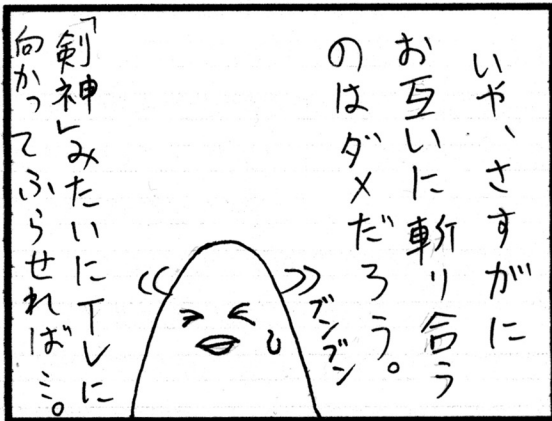 いや、さすがに
お互いに斬り合う
のはダメだろう。
ブンブン
「剣神」みたいにTVに
向かってふらせれば…。